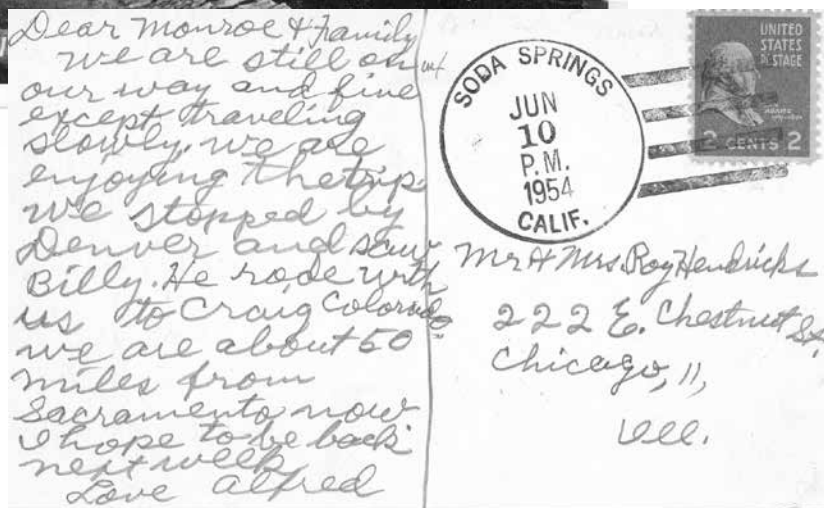 Dear Monroe & Family
we are still on
our way and fine
except traveling
slowly. we are
enjoying the trip.
we stopped by
Denver and saw
Billy. He rode with
us to Craig Colorado.
we are about 50
miles from
Sacramento now
I hope to be back
next week
Love Alfred
SODA SPRINGS
JUN
10
P.M.
1954
CALIF.
UNITED
STATES
POSTAGE
2 CENTS 2
Mr & Mrs. Roy Hendricks
222 E. Chestnut St.
Chicago, 11,
Ill.